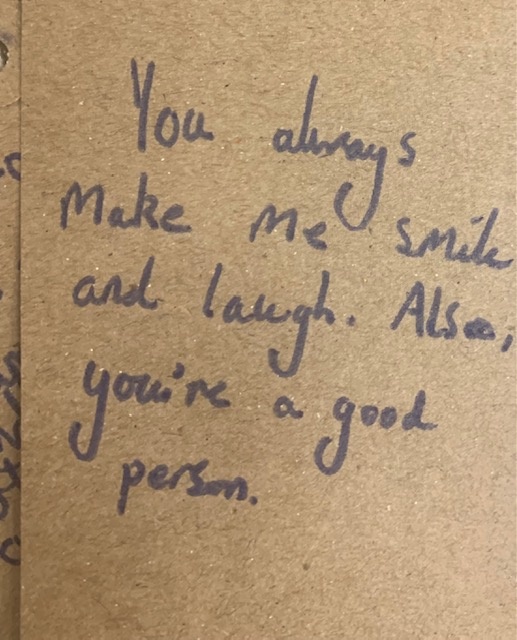 You always
Make Me smile
and laugh. Also,
you're a good
person.